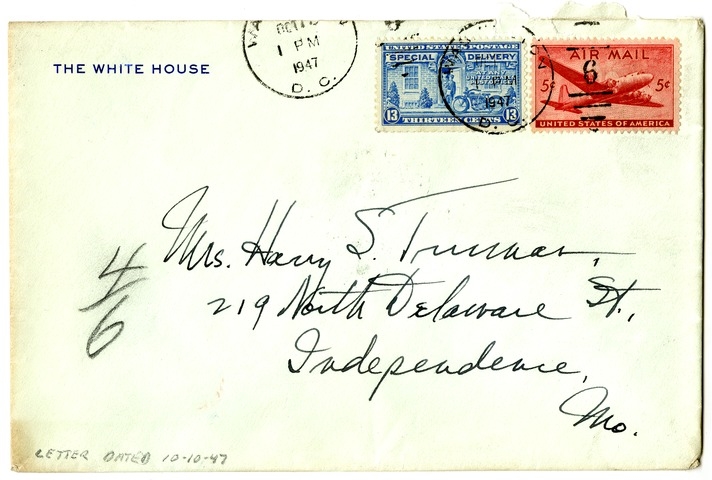 THE WHITE HOUSE
1 PM
1947
D. C.
UNITED STATES POSTAGE
SPECIAL DELIVERY
13 THIRTEEN CENTS 13
1947
D. C.
AIR MAIL
6
5¢ 5¢
UNITED STATES OF AMERICA
Mrs. Harry S. Truman,
219 North Delaware St.,
Independence,
Mo.
4/6
LETTER DATED 10-10-47